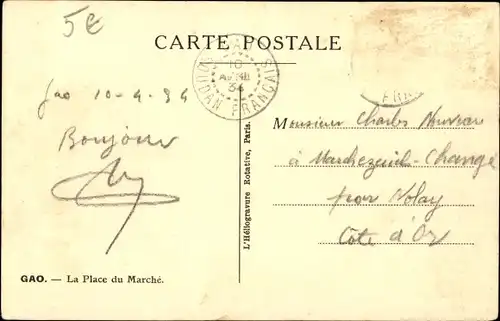 5€
CARTE POSTALE
GAO
10
AVRIL
34
SOUDAN FRANÇAIS
Gao 10-4-34
Bonjour
Monsieur Charles Nouveau
à Marchezeuil-Change
par Nolay
Côte d'Or
L'Héliogravure Rotative, Paris.
GAO. — La Place du Marché.